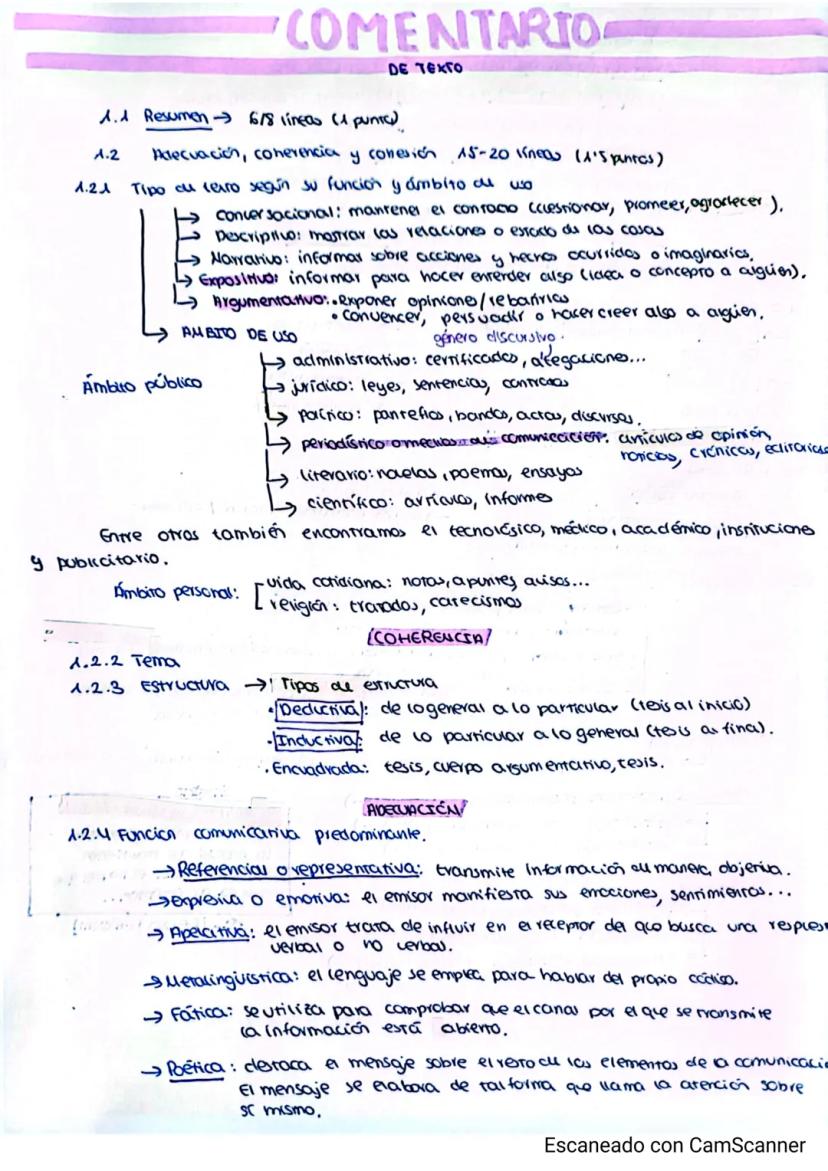 COMENTARIO
DE TEXTO
1.1 Resumen → 6/8 líneas (1 punto)
1.2 Adecuación, coherencia y cohesión 15-20 líneas (1'5 puntos)
1.2.1 Tipo de texto según su función y ámbito de uso
→ Conversacional: mantener el contacto (cuestionar, prometer, agradecer).
→ Descriptivo: mostrar las relaciones o estado de las cosas
→ Narrativo: informar sobre acciones y hechos ocurridos o imaginarios.
→ Expositivo: informar para hacer entender algo (idea o concepto a alguien).
→ Argumentativo: • exponer opiniones/rebatirlas
• convencer, persuadir o hacer creer algo a alguien.
→ AMBITO DE USO
género discursivo.
→ administrativo: certificados, alegaciones...
Ámbito público
→ jurídico: leyes, sentencias, contratos
→ político: panfletos, bandos, actas, discursos.
→ periodístico o medios de comunicación: artículos de opinión,
noticias, crónicas, editoriales
→ literario: novelas, poemas, ensayos
→ científico: artículos, informes
Entre otros también encontramos el tecnológico, médico, académico, instituciona
y publicitario.
Ámbito personal: vida cotidiana: notas, apuntes, avisos...
religión: tratados, catecismos
COHERENCIA
1.2.2 Tema
1.2.3 Estructura → Tipos de estructura
• Deductiva: de lo general a lo particular (tesis al inicio)
• Inductiva: de lo particular a lo general (tesis al final).
• Encuadrada: tesis, cuerpo argumentativo, tesis.
ADECUACIÓN
1.2.4 Función comunicativa predominante.
→ Referencial o representativa: transmite información de manera objetiva.
→ Expresiva o emotiva: el emisor manifiesta sus emociones, sentimientos...
→ Apelativa: el emisor trata de influir en el receptor del que busca una respues
verbal o no verbal.
→ Metalingüística: el lenguaje se emplea para hablar del propio código.
→ Fática: se utiliza para comprobar que el canal por el que se transmite
la información está abierto.
→ Poética: destaca el mensaje sobre el resto de los elementos de la comunicació
El mensaje se elabora de tal forma que llama la atención sobre
sí mismo.
Escaneado con CamScanner